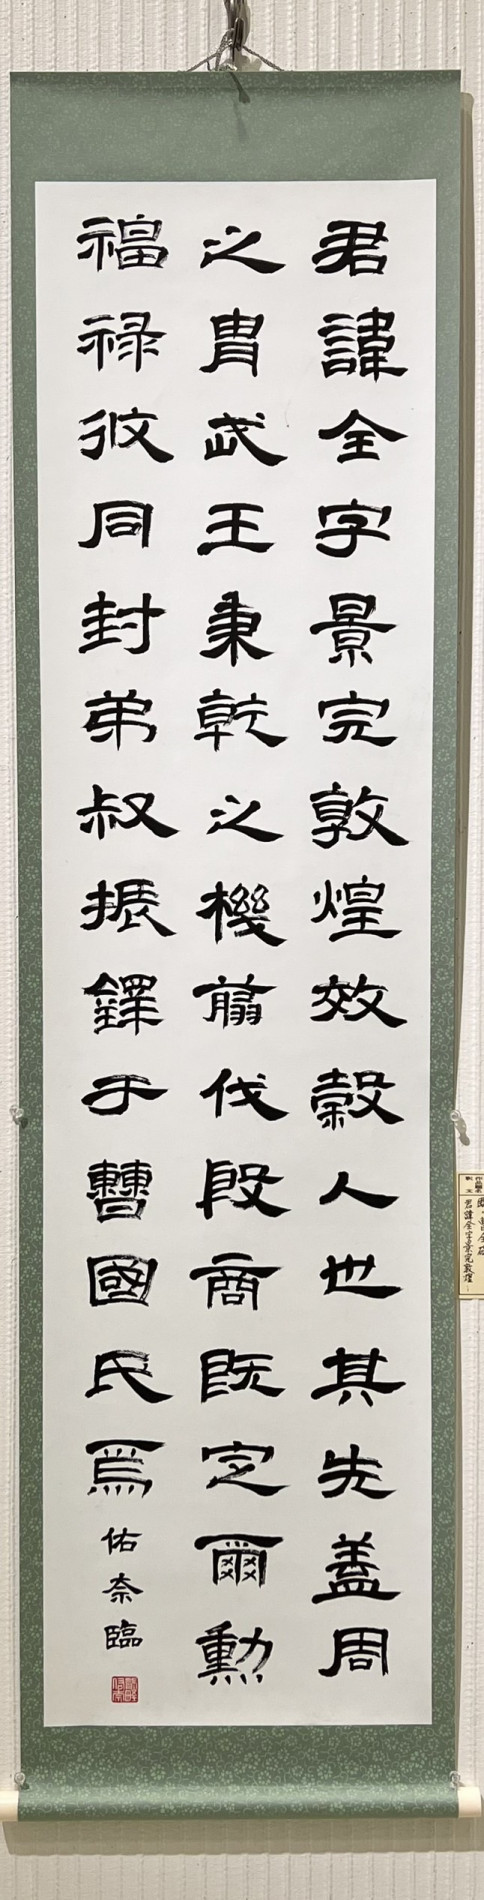 君諱全字景完敦煌效穀人也其先盖周
之胄武王秉乾之機翦伐殷商既定爾勳
福禄攸同封弟叔振鐸于曹國氏焉
佑奈臨
君諱全字景完敦煌～